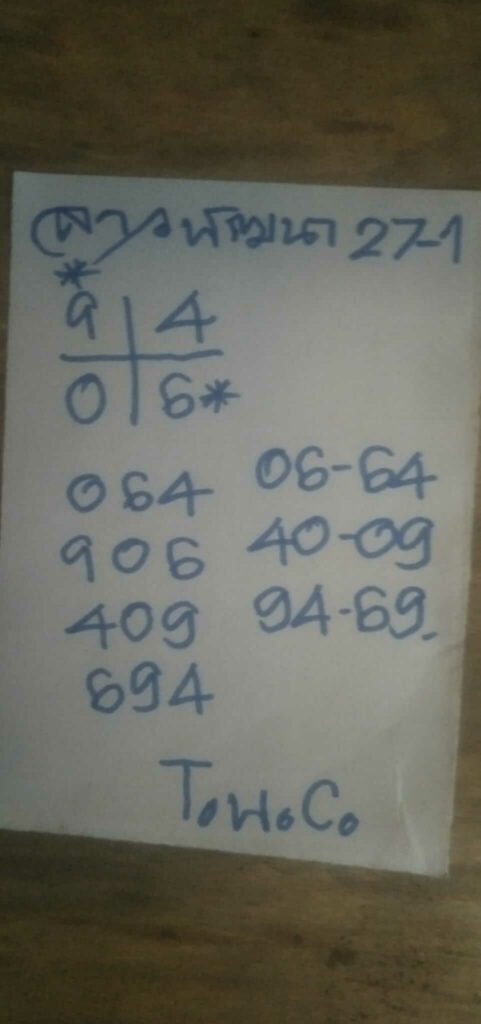 ลาวพัฒนา 27-1
*
9 4
0 6*
064 06-64
906 40-09
409 94-69.
694
T.W.C.